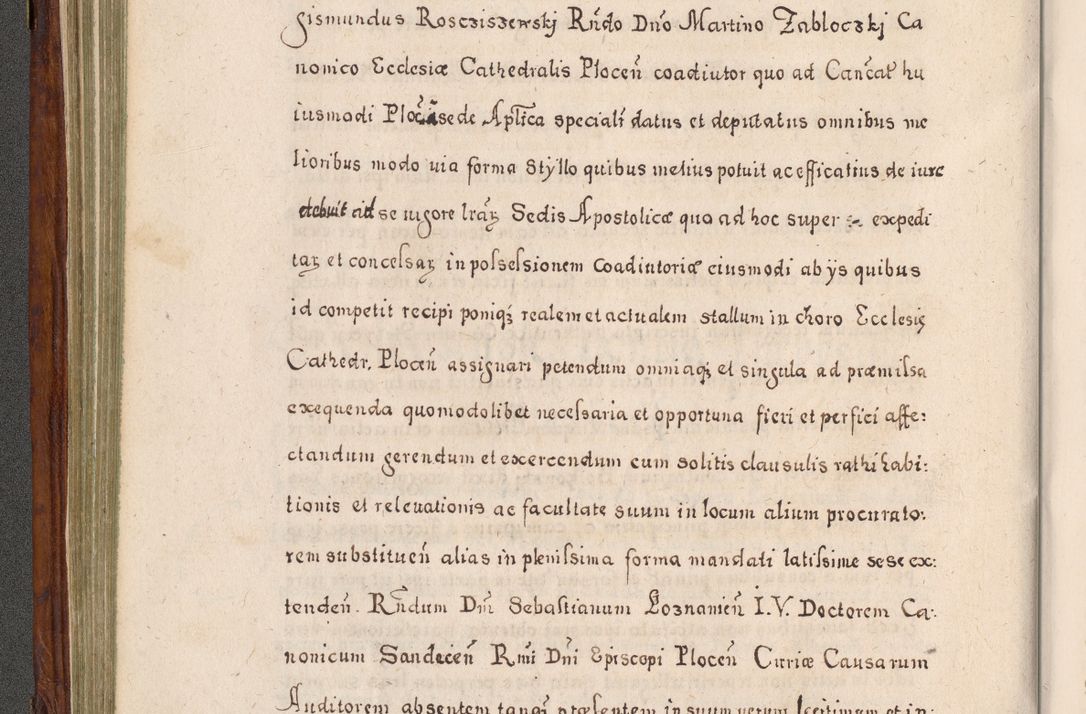 gismundus Roscziszewskj Rñdo Dño Martino Zabloczkj Ca
nonico Ecclesiæ Cathedralis Plocen̄ coadiutor quo ad Cancal̄ hu
iusmodi sede Apl̄ica speciali datus et deputatus omnibus me
lioribus modo uia forma Styllo quibus melius potuit ac efficatius de iure
debuit se uigore lr̄aꝝ Sedis Apostolicæ quo ad hoc super expedi
taꝝ et concessaꝝ in possessionem Coadiutoriæ eiusmodi ab ijs quibus
id competit recipi poniqꝫ realem et actualem stallum in choro Ecclesię
Cathedr. Plocen̄ assignari petendum omniaqꝫ et singula ad præmissa
exequenda quomodolibet necessaria et opportuna fieri et perfici affe:
ctandum gerendum et exercendum cum solitis clausulis rathihabi:
tionis et releuationis ac facultate suum in locum alium procurato:
rem substituen̄ alias in plenissima forma mandati latissime sese ex:
tenden̄. Rn̄dum Dn̄ Sebastianum Loznanien̄ I.V. Doctorem Ca:
nonicum Sandecen̄ Rm̄i Dn̄i Episcopi Plocen̄ Curiæ Causarum
Auditorem absentem tanqꝫ præsentem in suum uerum legitimum et in: